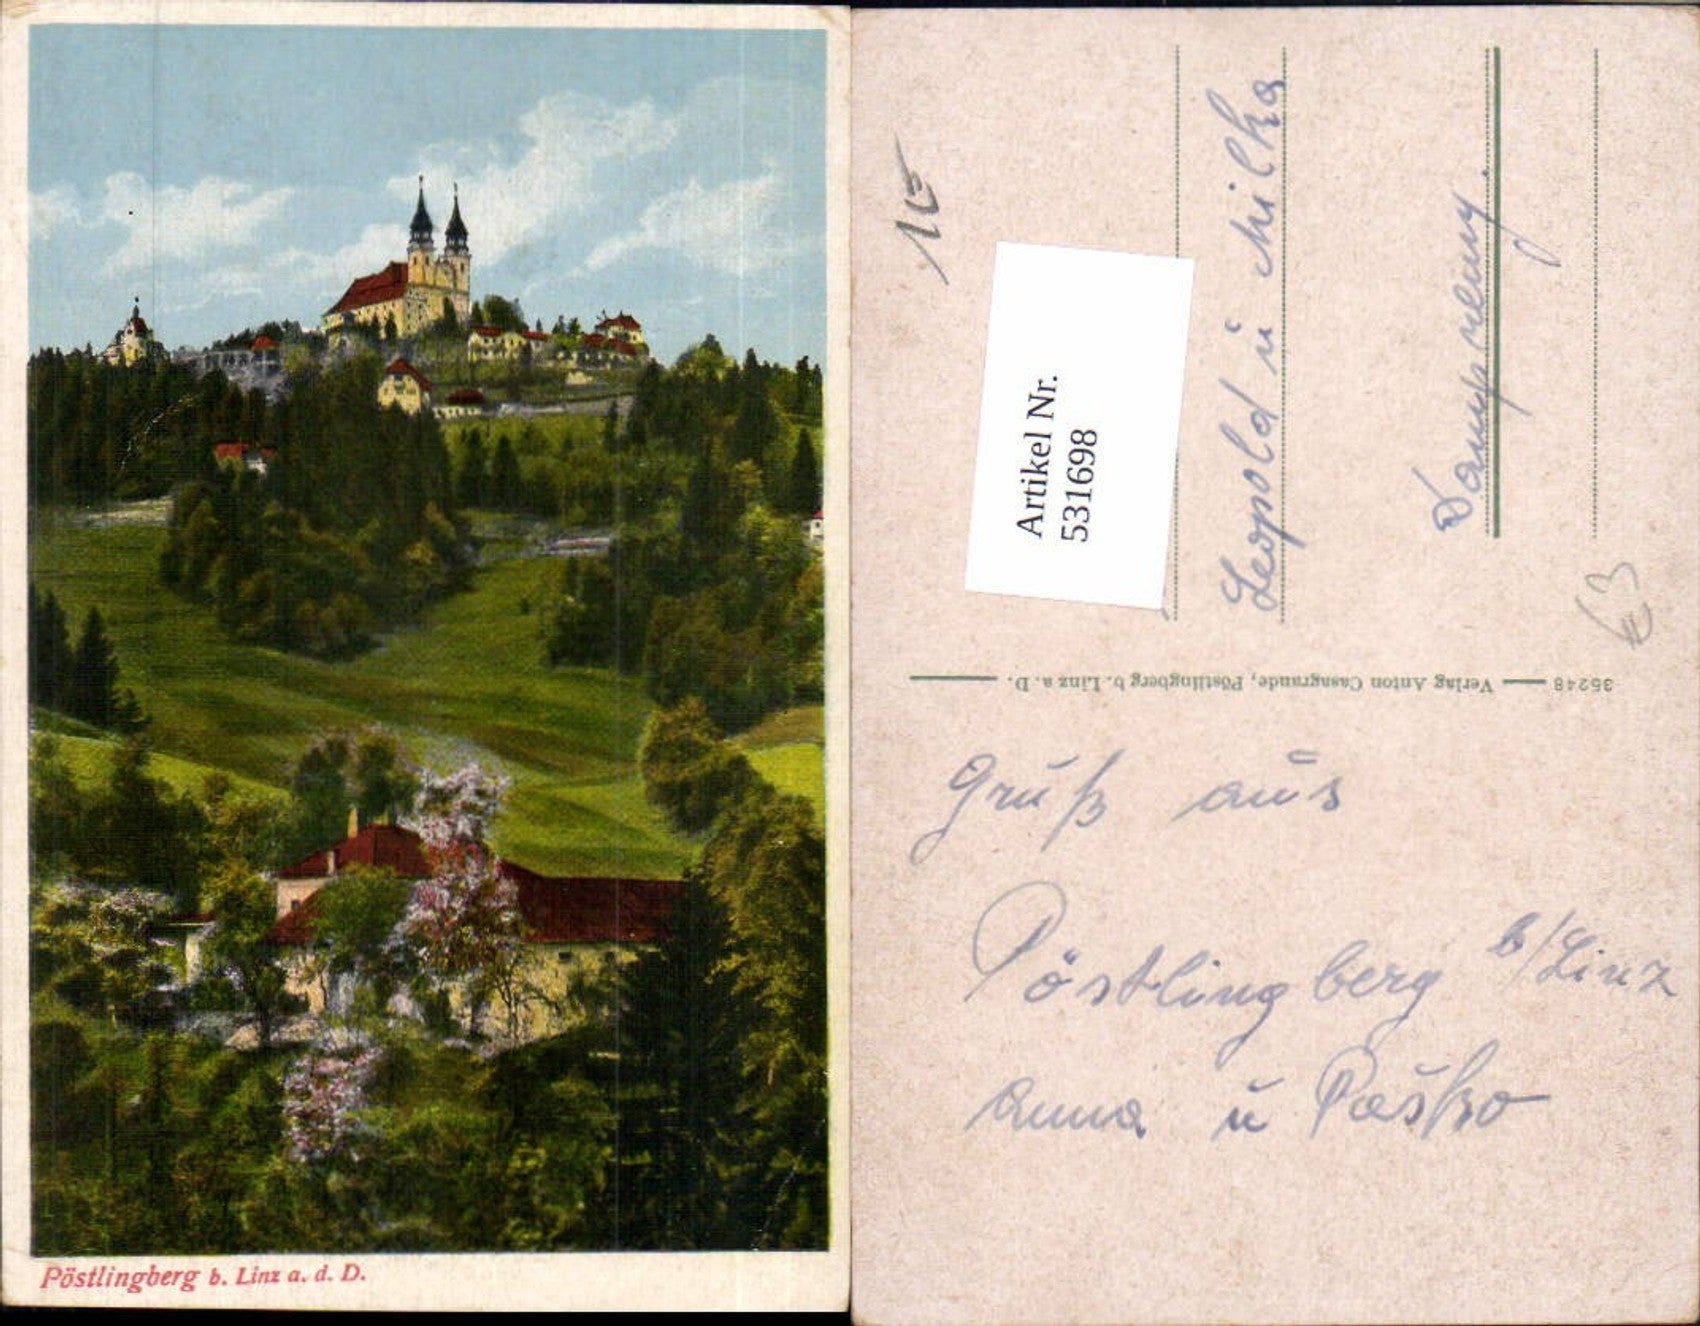 Pöstlingberg b. Linz a. d. D.
Artikel Nr.
531698
Leopold ü Milka
35248 — Verlag Anton Casagrande, Pöstlingberg b. Linz a. D.
Gruß aus
Pöstlingberg b/Linz
Anna ü
€3